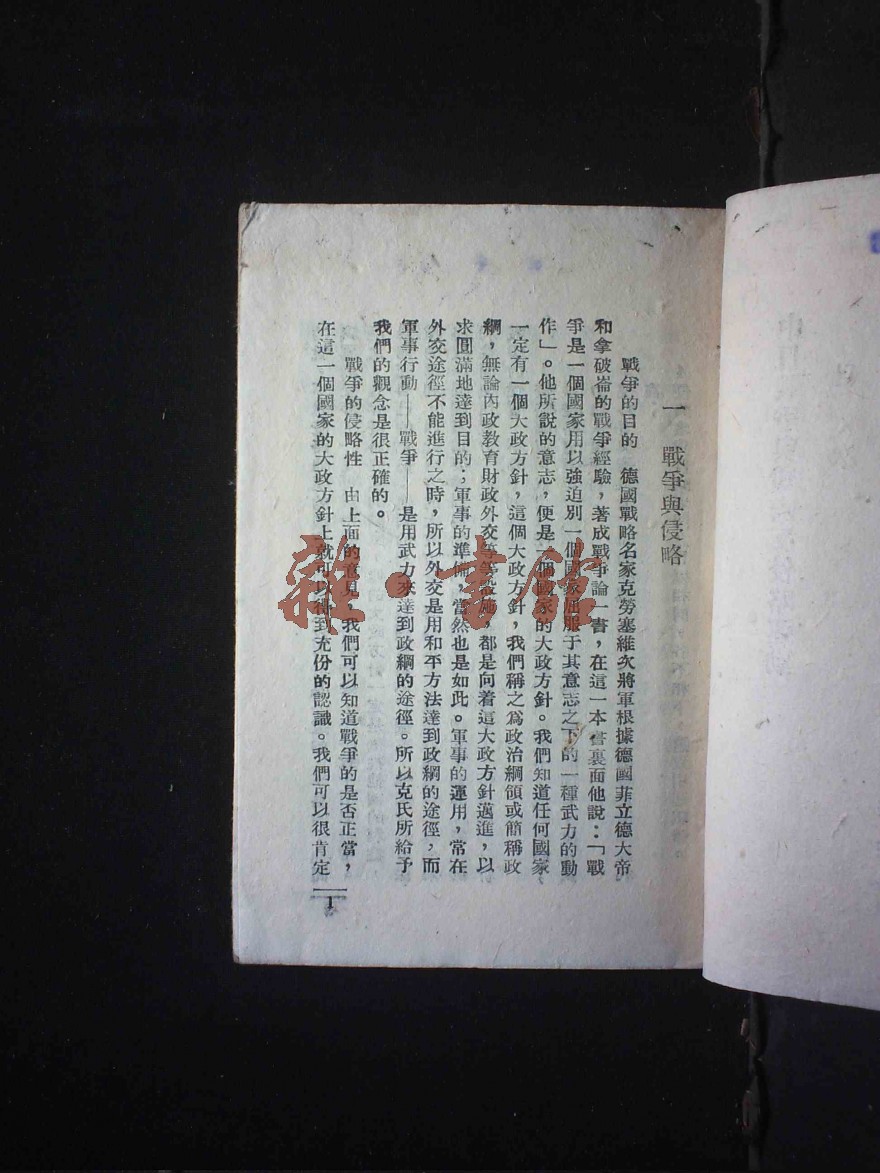 一　戰爭與侵略
戰爭的目的　德國戰略名家克勞塞維次將軍根據德國菲立德大帝
和拿破崙的戰爭經驗，著成戰爭論一書，在這一本書裏面他說：「戰
爭是一個國家用以強迫別一個國家屈服于其意志之下的一種武力的動
作」。他所說的意志，便是一個國家的大政方針。我們知道任何國家
一定有一個大政方針，這個大政方針，我們稱之爲政治綱領或簡稱政
綱，無論內政教育財政外交等等設施，都是向着這大政方針邁進，以
求圓滿地達到目的；軍事的準備，當然也是如此。軍事的運用，常在
外交途徑不能進行之時，所以外交是用和平方法達到政綱的途徑，而
軍事行動——戰爭——是用武力來達到政綱的途徑。所以克氏所給予
我們的觀念是很正確的。
戰爭的侵略性　由上面的意見，我們可以知道戰爭的是否正當，
在這一個國家的大政方針上就可以得到充份的認識。我們可以很肯定
1
雜·書館